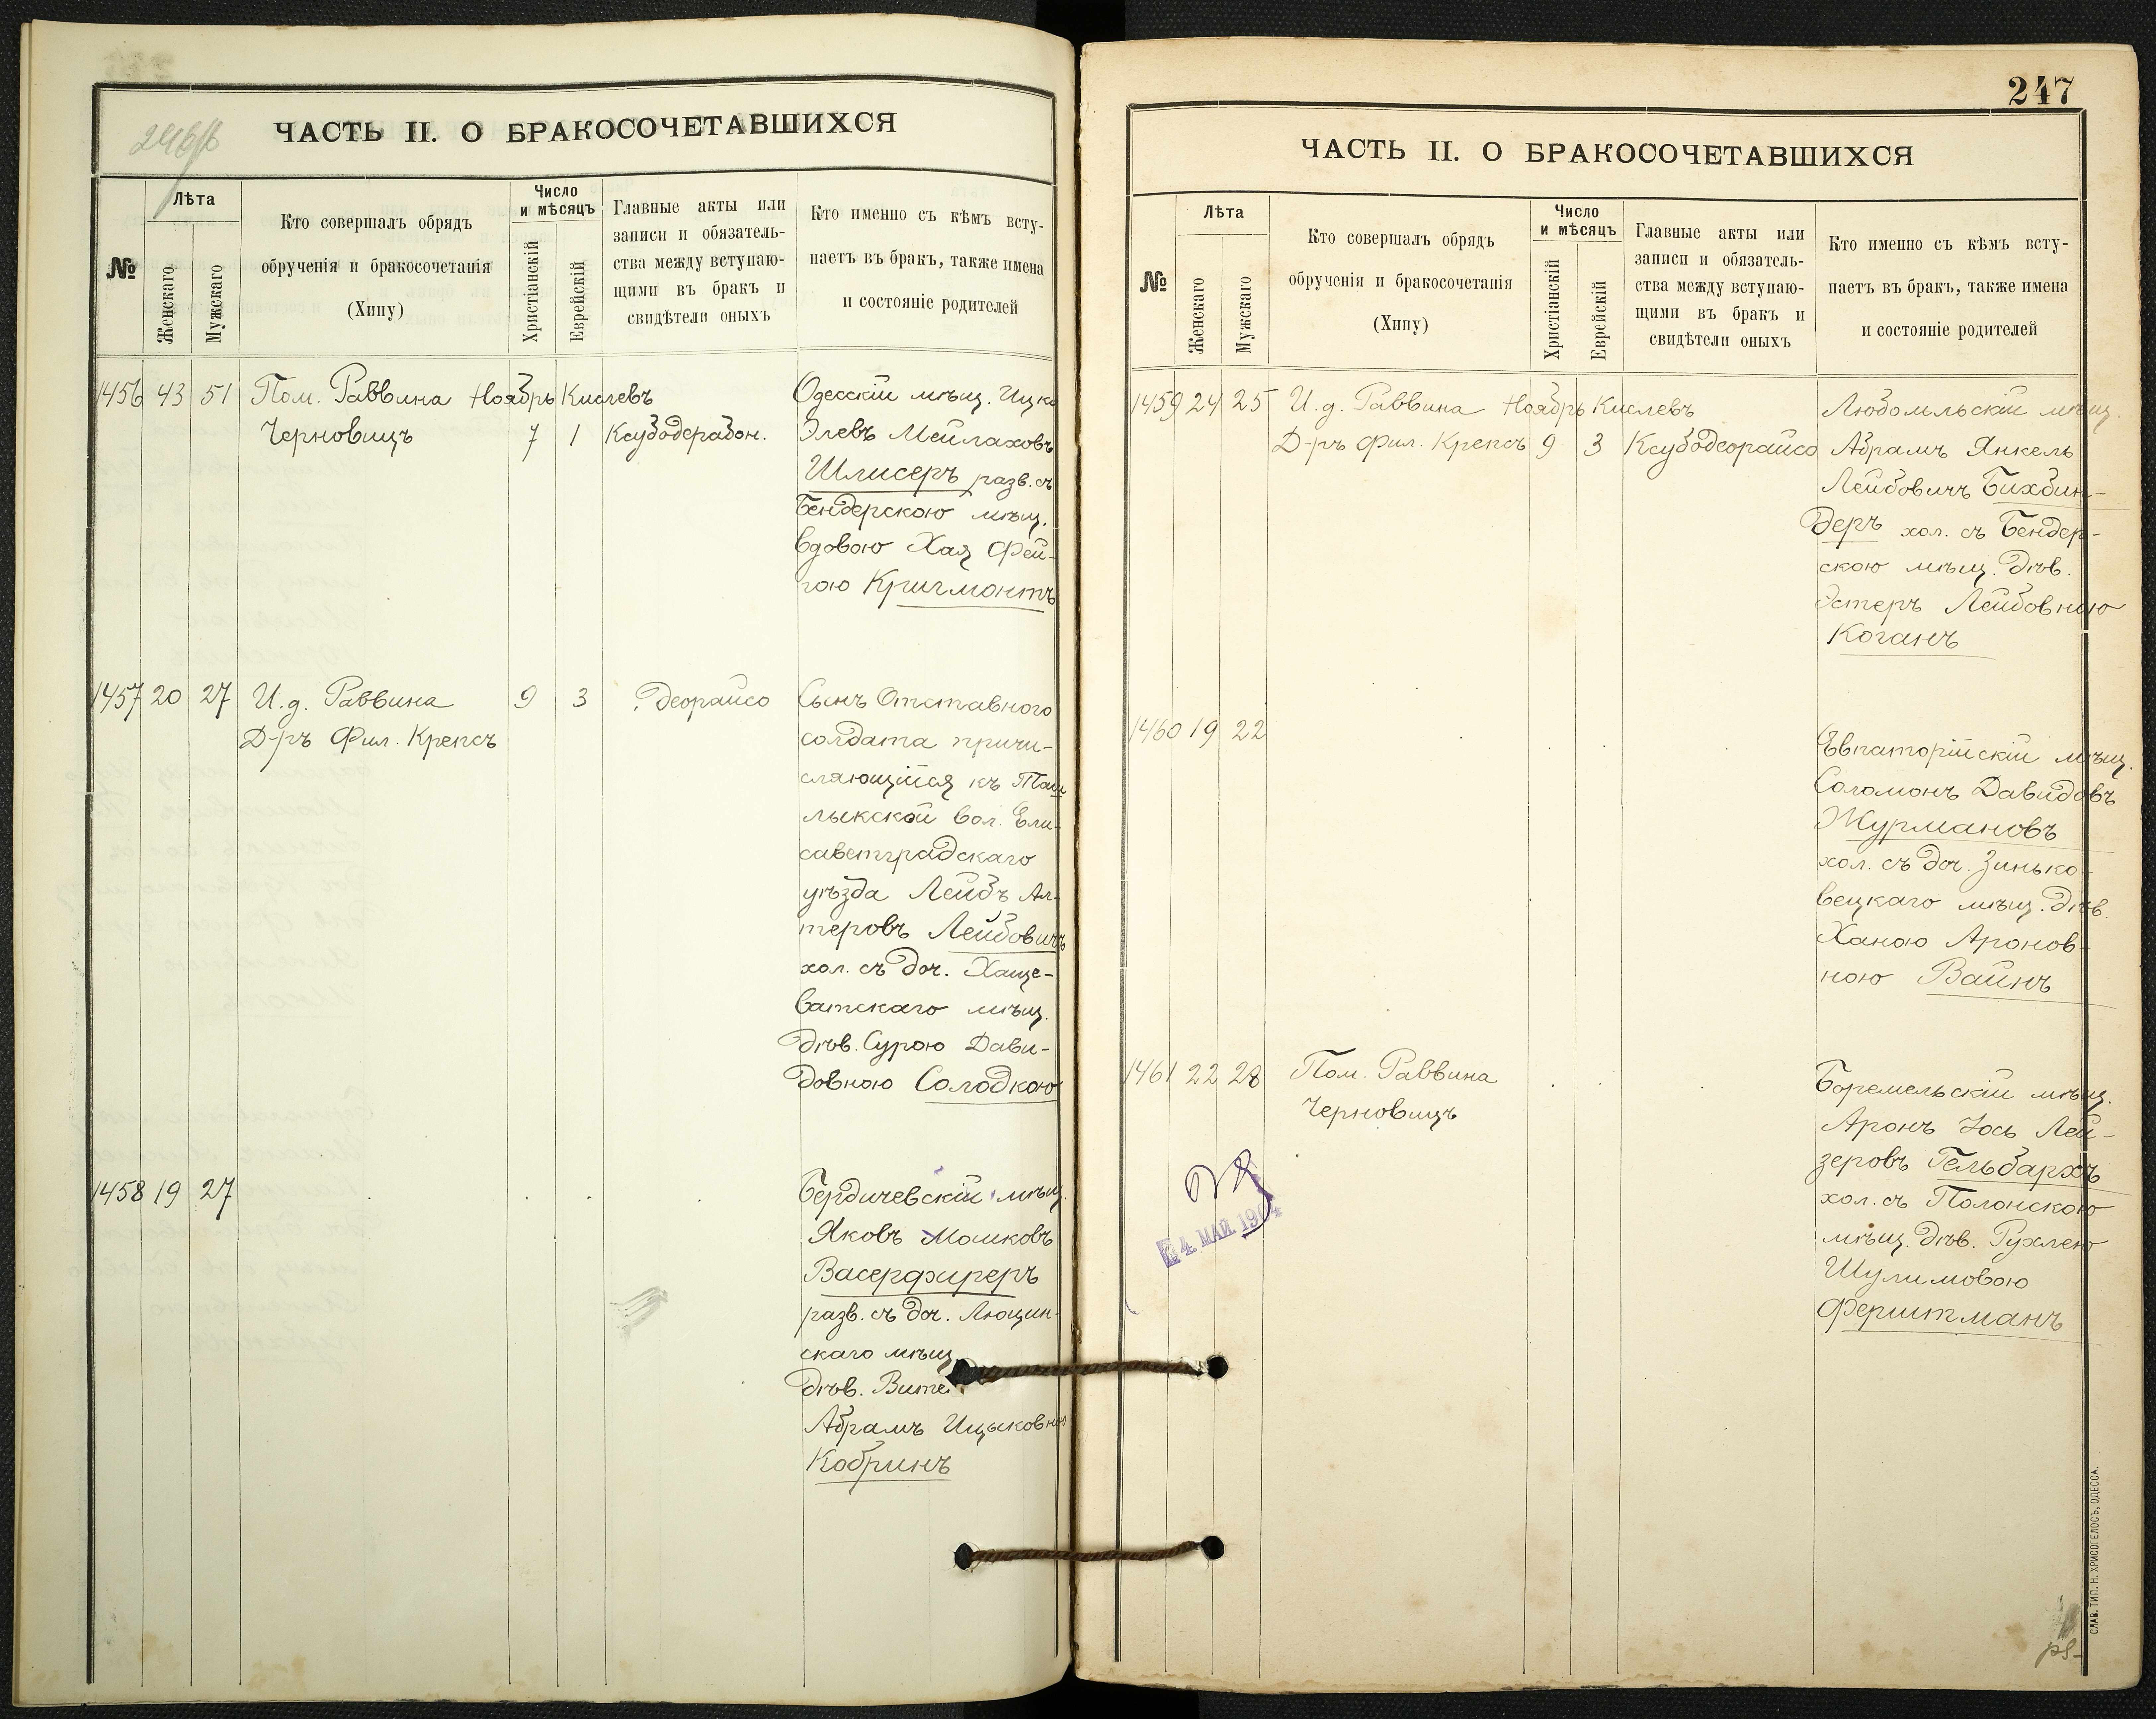 ЧАСТЬ II. О БРАКОСОЧЕТАВШИХСЯ
№
Лѣта
Женскаго
Мужскаго
Кто совершалъ обрядъ
обрученія и бракосочетанія
(Хипу)
Число
и мѣсяцъ
Христіанскій
Еврейскій
Главные акты или
записи и обязатель-
ства между вступаю-
щими въ бракъ и
свидѣтели оныхъ
Кто именно съ кѣмъ всту-
паетъ въ бракъ, также имена
и состояніе родителей
1456 43 51 Пом. Раввина Ноябрь Кислевъ
Черновицъ 7 1 Ксубодерабон.
Одесскій мѣщ. Ицко
Элевъ Мейлаховъ
Шлисеръ разв. съ
Бендерскою мѣщ.
вдовою Хая Фей-
гою Кригмонтъ
1457 20 27 И. д. Раввина 9 3 Деорайсо
Д-ръ Фил. Крепсъ
Сынъ Отставного
солдата причи-
сляющійся къ Таш
лыкской вол. Ели-
саветградскаго
уѣзда Лейбъ Ал-
теровъ Лейбовичъ
хол. съ доч. Хаще-
ватскаго мѣщ.
дѣв. Сурою Дави-
довною Солодкою
1458 19 27
Бердичевскій мѣщ.
Яковъ Мошковъ
Васерфиреръ
разв. съ доч. Люцин-
скаго мѣщ.
дѣв. Вите
Абрамъ Ицыковною
Кобринъ
247
ЧАСТЬ II. О БРАКОСОЧЕТАВШИХСЯ
№
Лѣта
Женскаго
Мужскаго
Кто совершалъ обрядъ
обрученія и бракосочетанія
(Хипу)
Число
и мѣсяцъ
Христіанскій
Еврейскій
Главные акты или
записи и обязатель-
ства между вступаю-
щими въ бракъ и
свидѣтели оныхъ
Кто именно съ кѣмъ всту-
паетъ въ бракъ, также имена
и состояніе родителей
1459 24 25 И. д. Раввина Ноябрь Кислевъ
Д-ръ Фил. Крепсъ 9 3 Ксубодеорайсо
Любомльскій мѣщ.
Абрамъ Янкель
Лейбовичъ Бихбин-
деръ хол. съ Бендер-
скою мѣщ. дѣв.
Эстеръ Лейбовною
Коганъ
1460 19 22
Евпаторійскій мѣщ.
Соломонъ Давидовъ
Журмановъ
хол. съ доч. Зинько-
вецкаго мѣщ. дѣв.
Ханою Аронов-
ною Вайнъ
1461 22 28 Пом. Раввина
Черновицъ
Боремельскій мѣщ.
Аронъ Іось Лей-
зеровъ Гельбархъ
хол. съ Полонскою
мѣщ. дѣв. Рухлею
Шулимовою
Ферштманъ
4 МАЙ 1904
СЛАВ. ТИП. Н. ХРИСОГЕЛОСЪ, ОДЕССА.